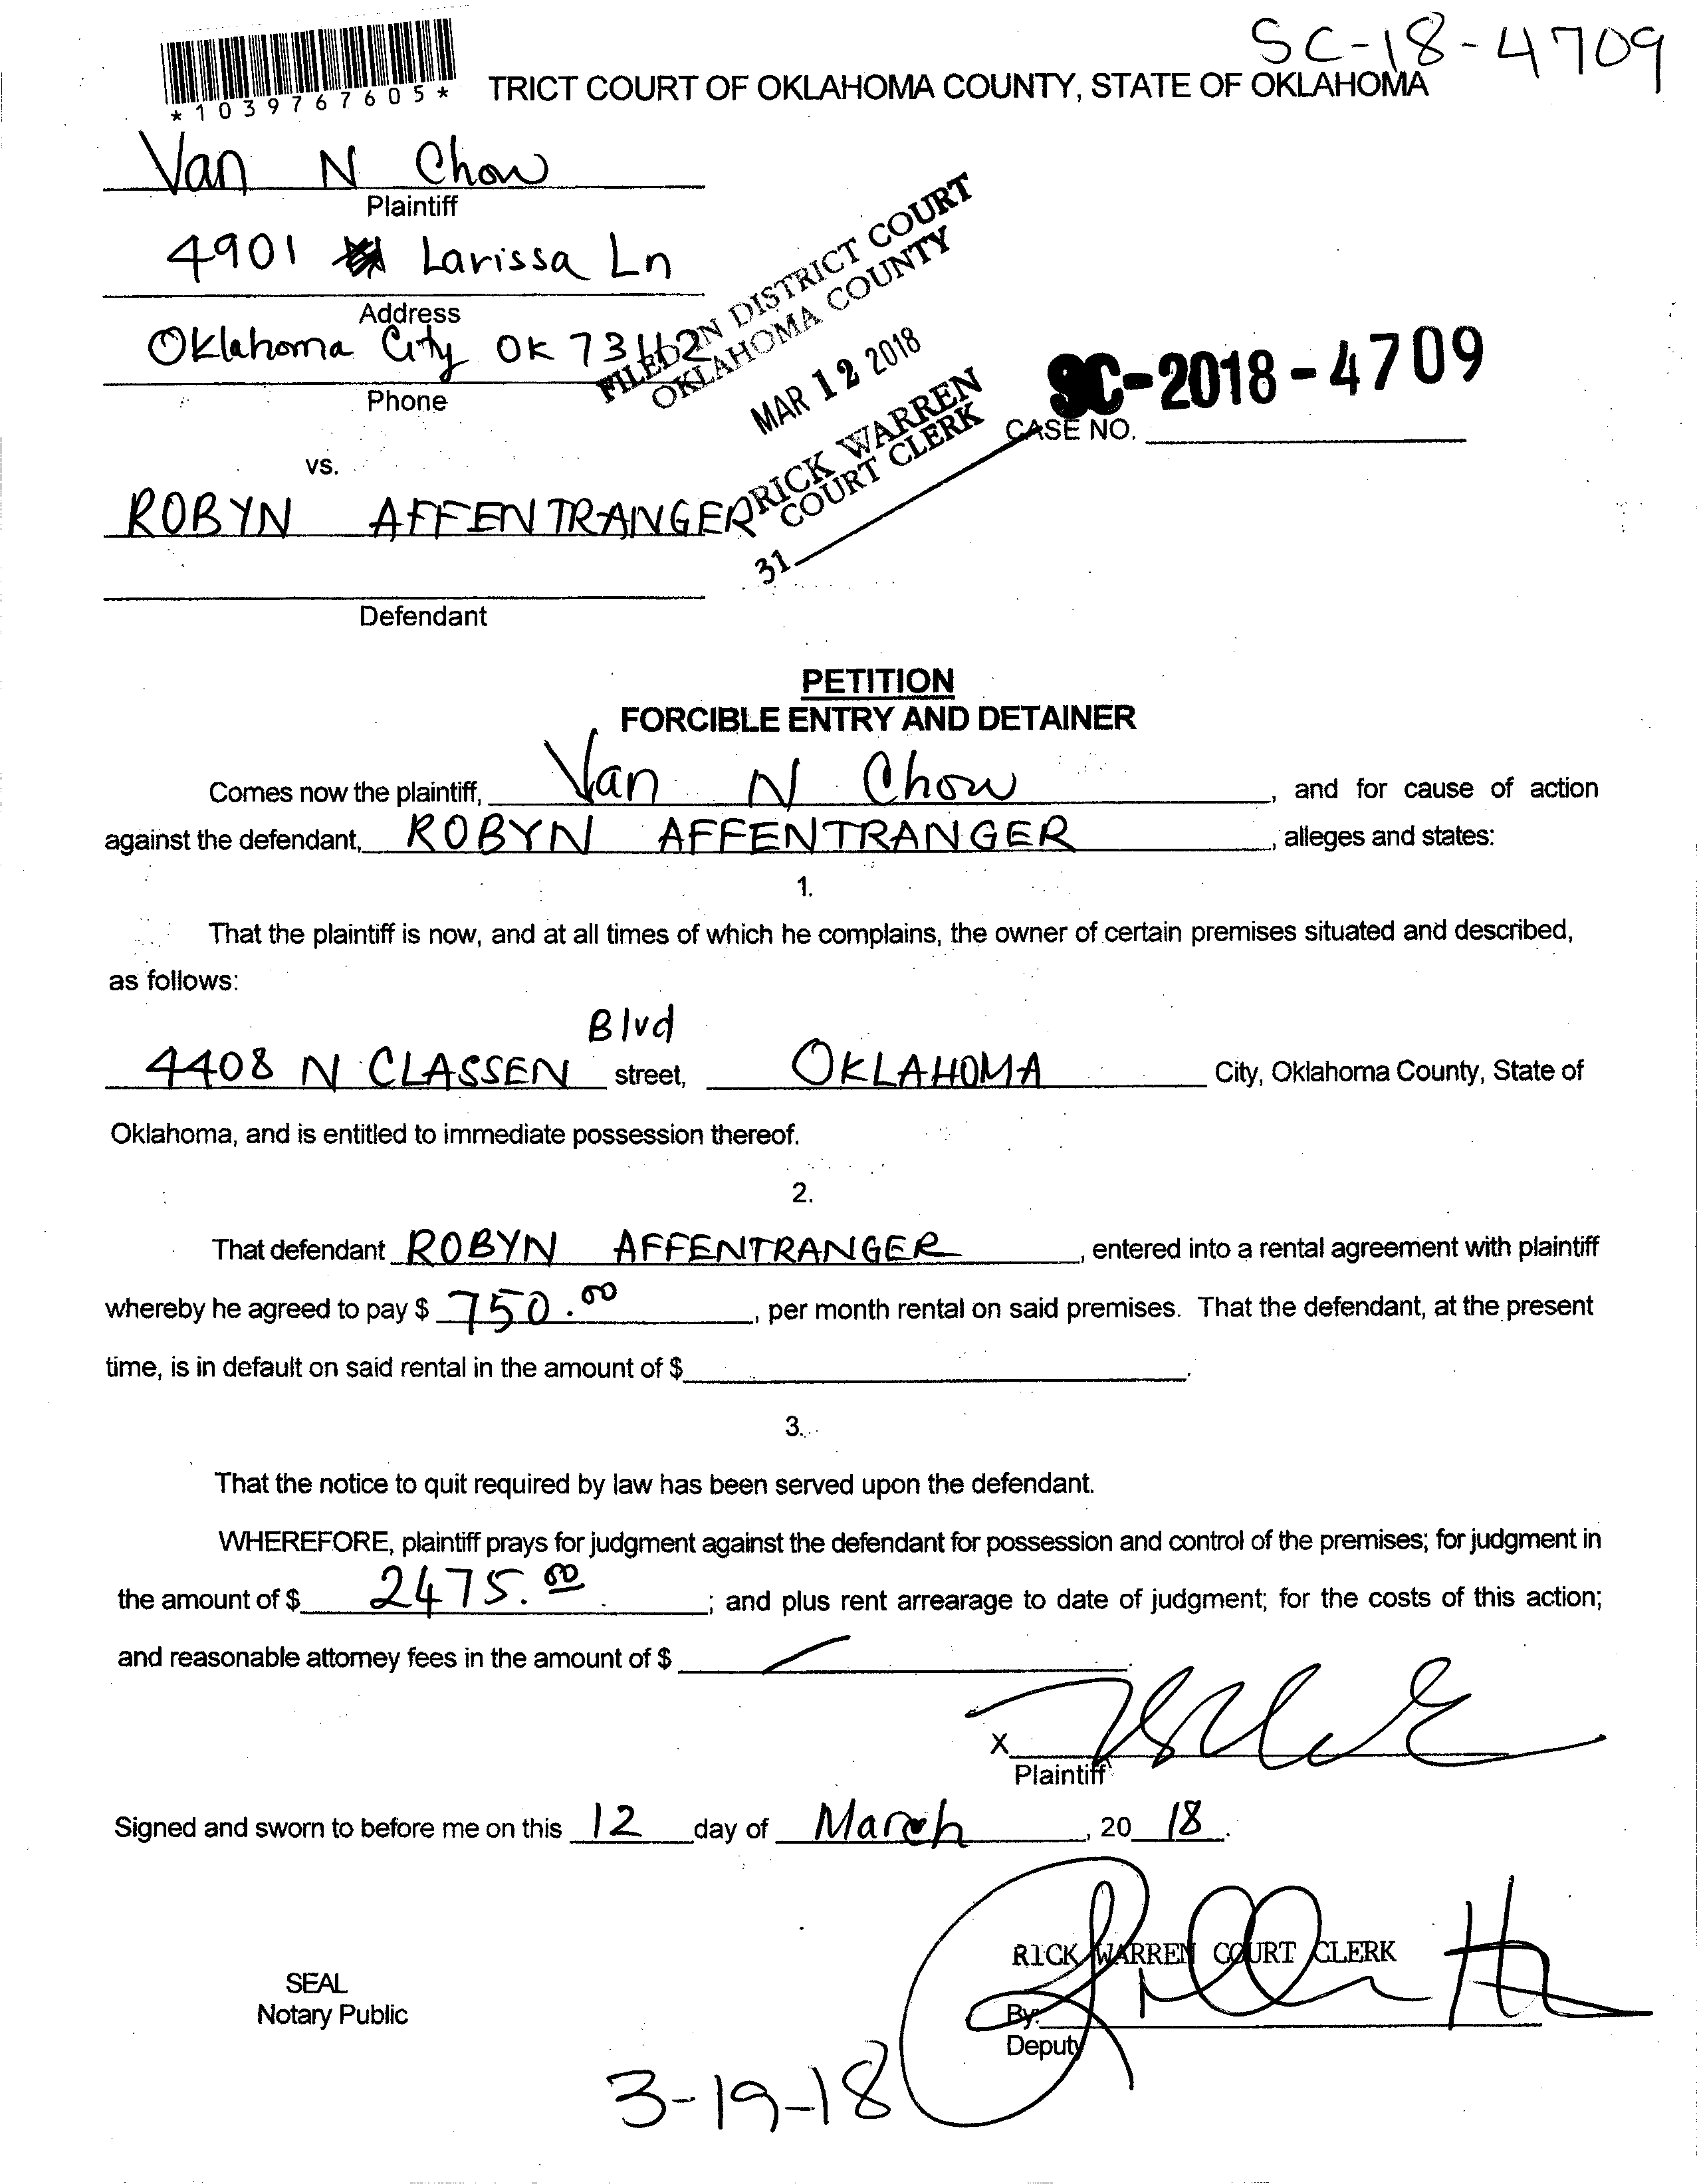 SC-18-4709
*1039767605*
TRICT COURT OF OKLAHOMA COUNTY, STATE OF OKLAHOMA
Van N Chow
Plaintiff
4901 Larissa Ln
Address
Oklahoma City OK 73112
Phone
FILED IN DISTRICT COURT
OKLAHOMA COUNTY
MAR 12 2018
RICK WARREN
COURT CLERK
31
SC-2018-4709
CASE NO.
vs.
ROBYN AFFENTRANGER
Defendant
PETITION
FORCIBLE ENTRY AND DETAINER
Comes now the plaintiff, Van N Chow, and for cause of action
against the defendant, ROBYN AFFENTRANGER, alleges and states:
1.
That the plaintiff is now, and at all times of which he complains, the owner of certain premises situated and described,
as follows:
Blvd
4408 N CLASSEN street, OKLAHOMA City, Oklahoma County, State of
Oklahoma, and is entitled to immediate possession thereof.
2.
That defendant ROBYN AFFENTRANGER, entered into a rental agreement with plaintiff
whereby he agreed to pay $ 750.00, per month rental on said premises. That the defendant, at the present
time, is in default on said rental in the amount of $.
3.
That the notice to quit required by law has been served upon the defendant.
WHEREFORE, plaintiff prays for judgment against the defendant for possession and control of the premises; for judgment in
the amount of $ 2475.00; and plus rent arrearage to date of judgment; for the costs of this action;
and reasonable attorney fees in the amount of $.
X
Plaintiff
Signed and sworn to before me on this 12 day of March, 20 18.
RICK WARREN COURT CLERK
SEAL
Notary Public
By:
Deputy
3-19-18